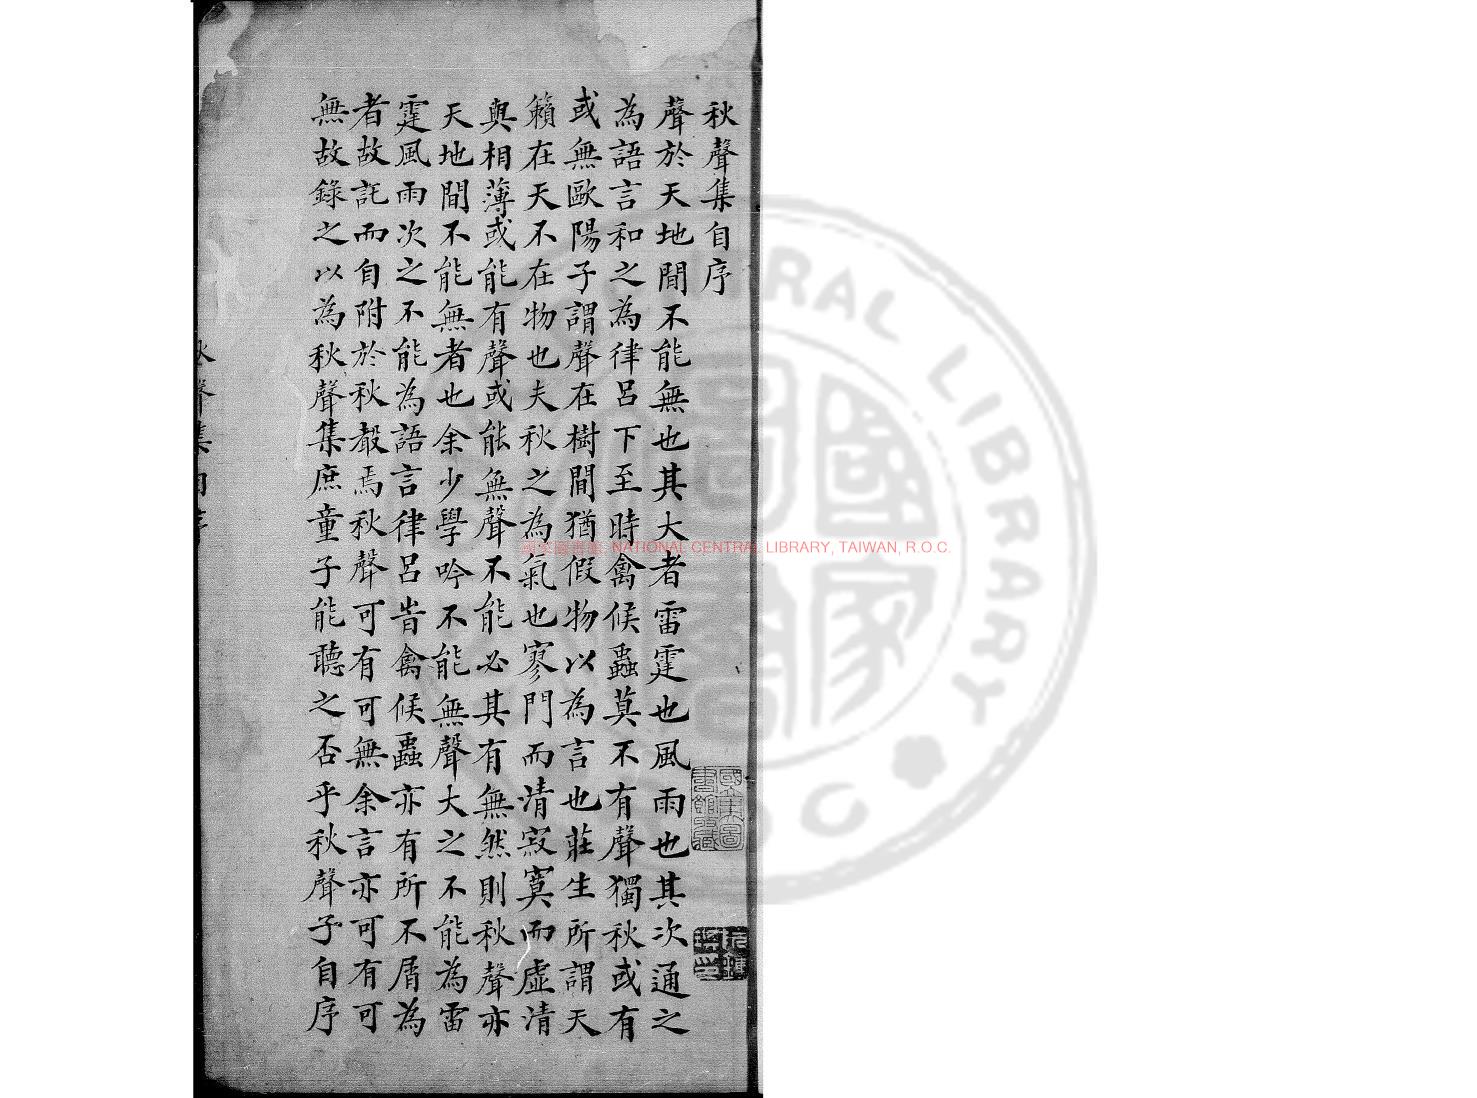 秋聲集自序
聲於天地間不能無也其大者雷霆也風雨也其次通之
為語言和之為律呂下至時禽候蟲莫不有聲獨秋或有
或無歐陽子謂聲在樹間猶假物以為言也莊生所謂天
籟在天不在物也夫秋之為氣也寥門而清寂寞而虛清
與相薄或能有聲或能無聲不能必其有無然則秋聲亦
天地間不能無者也余少學吟不能無聲大之不能為雷
霆風雨次之不能為語言律呂旹禽候蟲亦有所不屑為
者故託而自附於秋聲焉秋聲可有可無余言亦可有可
無故錄之以為秋聲集庶童子能聽之否乎秋聲子自序
秋聲集自序
國家圖書館 NATIONAL CENTRAL LIBRARY, TAIWAN, R.O.C.
國家圖書館藏